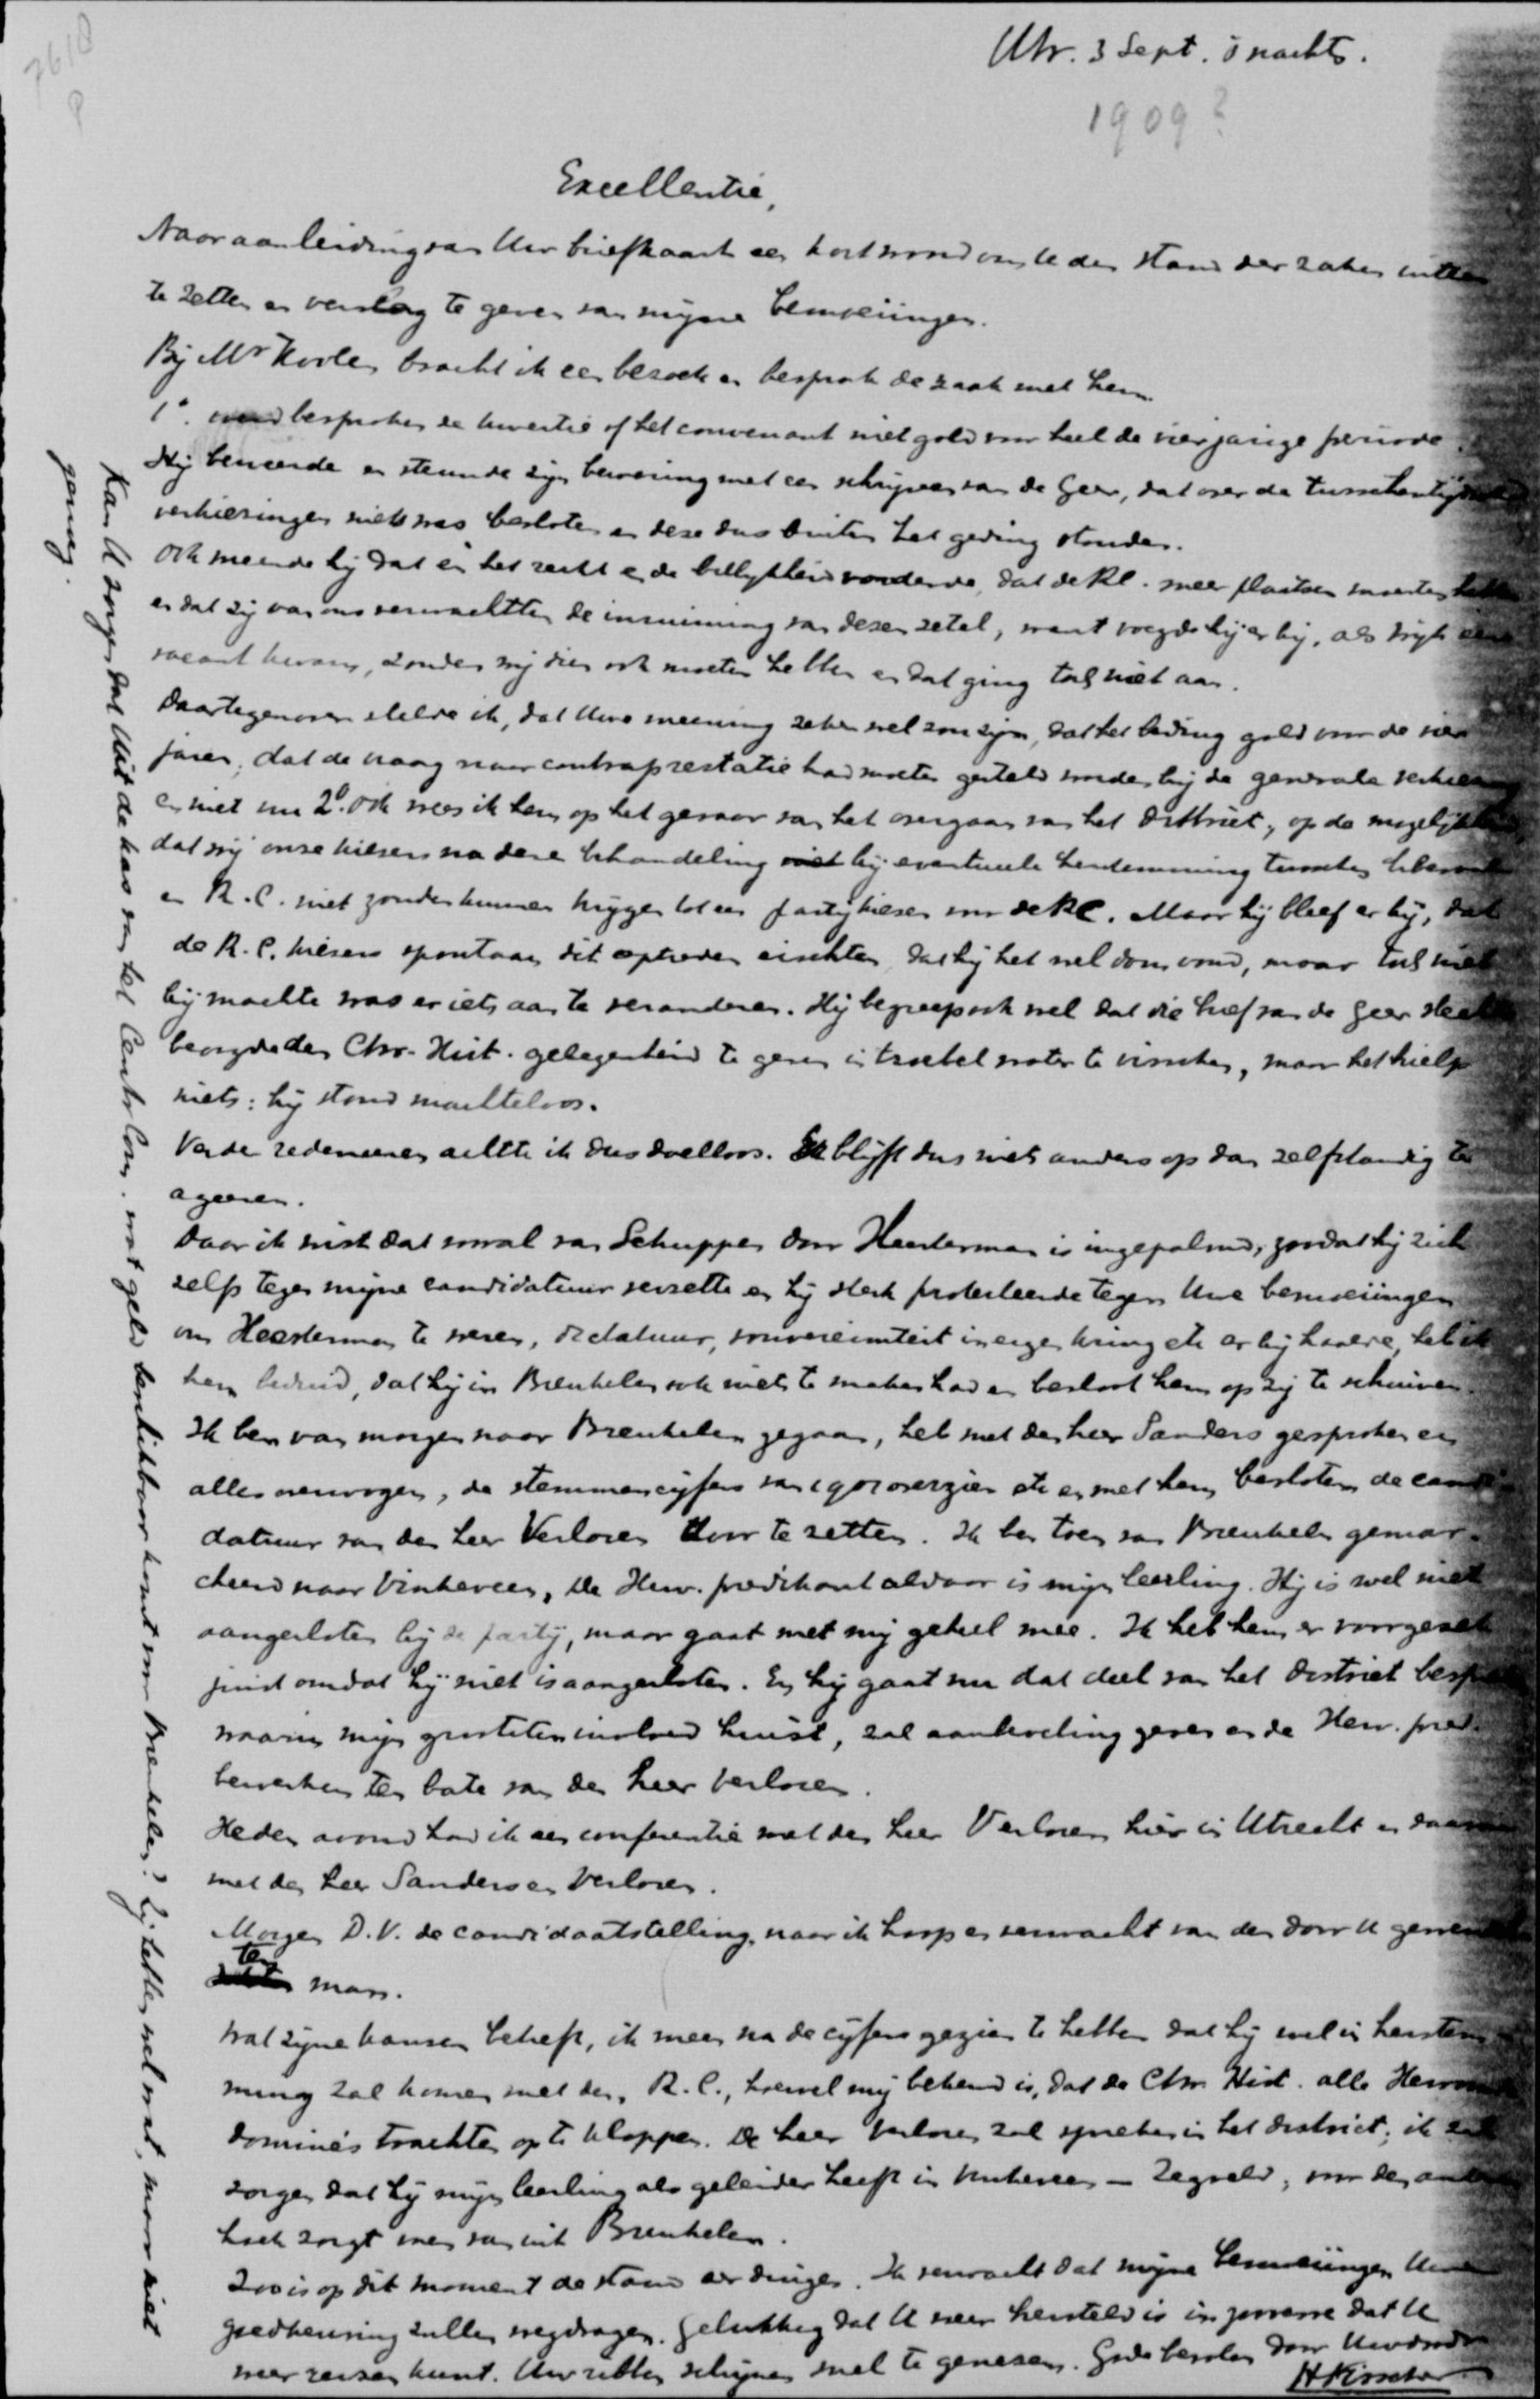 7618
P
Utr. 3 Sept. 's nachts.
1909?
Excellentie,
Naar aanleiding van Uw briefkaart een kort woord om U den stand der zaken uitteen
te zetten en verslag te geven van mijne bemoeiingen.
Bij Mr Koolen bracht ik een bezoek en besprak de zaak met hem.
1°. werd besproken de kwestie of het convenant niet gold voor heel de vierjarige periode.
Hij beweerde en steunde zijn bewering met een schrijven van de Geer, dat over de tusschentijdsche
verkiezingen niets was besloten en deze dus buiten het geding stonden.
Ook meende hij dat èn het recht en de billijkheid vorderde, dat de RC. meer plaatsen moesten hebben
en dat zij van ons verwachtten de inruiming van dezen zetel, want voegde hij er bij, als Wijk eens
vacant kwam, zouden wij dien ook moeten hebben en dat ging toch niet aan.
Daartegenover stelde ik, dat Uwe meening zeker wel zou zijn, dat het beding gold voor de vier
jaren; dat de vraag naar contraprestatie had moeten gesteld worden bij de generale verkiezing
en niet nu 2°. Ook wees ik hem op het gevaar van het overgaan van het district, op de mogelijkheid,
dat wij onze kiezers na deze behandeling niet bij eventueele herstemming tusschen liberaal
en R.C. niet zouden kunnen krijgen tot een partij kiezen voor de RC. Maar hij bleef er bij, dat
de R.C. kiezers spontaan dit optreden eischten, dat hij het wel dom vond, maar toch niet
bij machte was er iets aan te veranderen. Hij begreep ook wel dat die brief van de Geer slechts
beoogde den Chr. Hist. gelegenheid te geven in troebel water te visschen, maar het hielp
niets: hij stond machteloos.
Verder redeneeren achtte ik dus doelloos. Er blijft dus niets anders op dan zelfstandig te
ageeren.
Daar ik wist dat vooral van Schuppen door Heesterman is ingepalmd, zoodat hij zich
zelfs tegen mijne candidatuur verzette en hij sterk protesteerde tegen Uwe bemoeiingen
om Heesterman te weren, dictatuur, souvereiniteit in eigen kring etc er bij haalde, heb ik
hem beduid, dat hij in Breukelen ook niets te maken had en besloot hem op zij te schuiven.
Ik ben van morgen naar Breukelen gegaan, heb met den heer Sanders gesproken en
alles overwogen, de stemmencijfers van 1901 overzien etc en met hem besloten de candi-
datuur van den heer Verloren door te zetten. Ik ben toen van Breukelen gemar-
cheerd naar Vinkeveen, De Herv. predikant aldaar is mijn leerling. Hij is wel niet
aangesloten bij de partij, maar gaat met mij geheel mee. Ik heb hem er voorgezet
juist omdat hij niet is aangesloten. En hij gaat nu dat deel van het district
waarin mijn grootsten invloed huist, zal aanbeveling geven en de Herv. pred.
bewerken ten bate van den heer Verloren.
Heden avond had ik een conferentie met den heer Verloren hier in Utrecht en daarna
met den heer Sanders en Verloren.
Morgen D.V. de candidaatstelling, naar ik hoop en verwacht van den door U gewensch-
ten man.
Wat zijne kansen betreft, ik meen na de cijfers gezien te hebben dat hij wel in herstem-
ming zal komen met den R.C., hoewel mij bekend is, dat de Chr. Hist. alle Hervormde
dominé's trachten op te kloppen. De heer Verloren zal spreken in het district; ik zal
zorgen dat hij mijn leerling als geleider heeft in Vinkeveen – Zegveld; voor den anderen
hoek zorgt men van uit Breukelen.
Zoo is op dit moment de stand der dingen. Ik verwacht dat mijne bemoeiingen Uwe
goedkeuring zullen wegdragen. Gelukkig dat U weer hersteld is in zooverre dat U
weer reizen kunt. Uw ribben schijnen snel te genezen. Gode bevolen door Uwdw
H Visscher
Kan U zorgen dat uit de kas van het Centr. Com. wat geld beschikbaar komt voor Breukelen? Zij hebben wel wat, maar niet
genoeg.